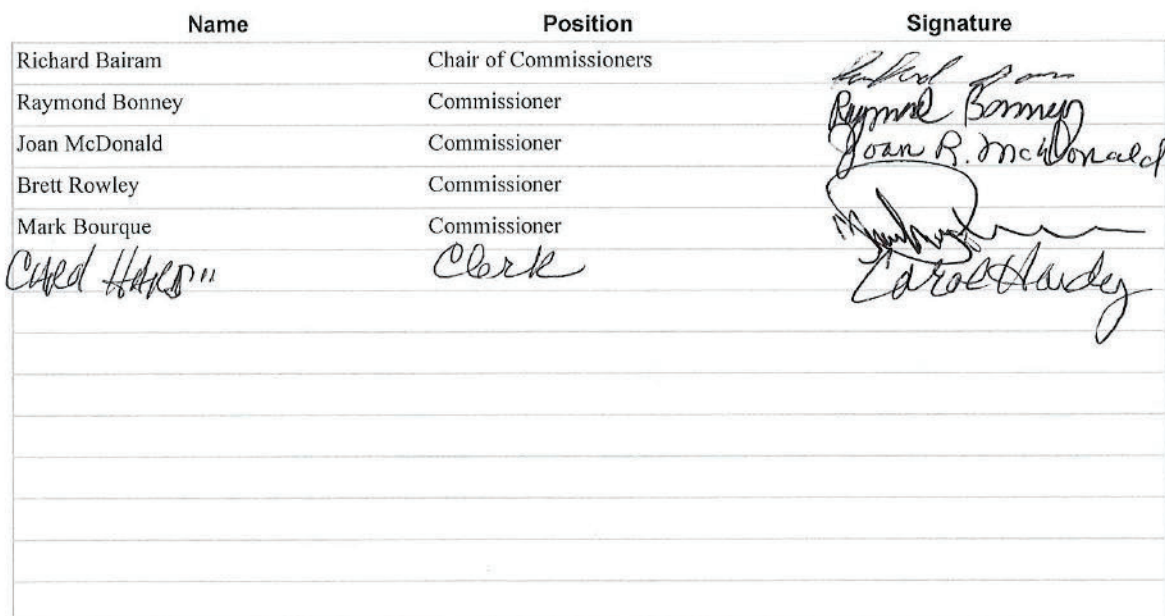 Name Position Signature
Richard Bairam Chair of Commissioners
Raymond Bonney Commissioner Raymond Bonney
Joan McDonald Commissioner Joan R. McDonald
Brett Rowley Commissioner
Mark Bourque Commissioner
Clerk Carol Hardy